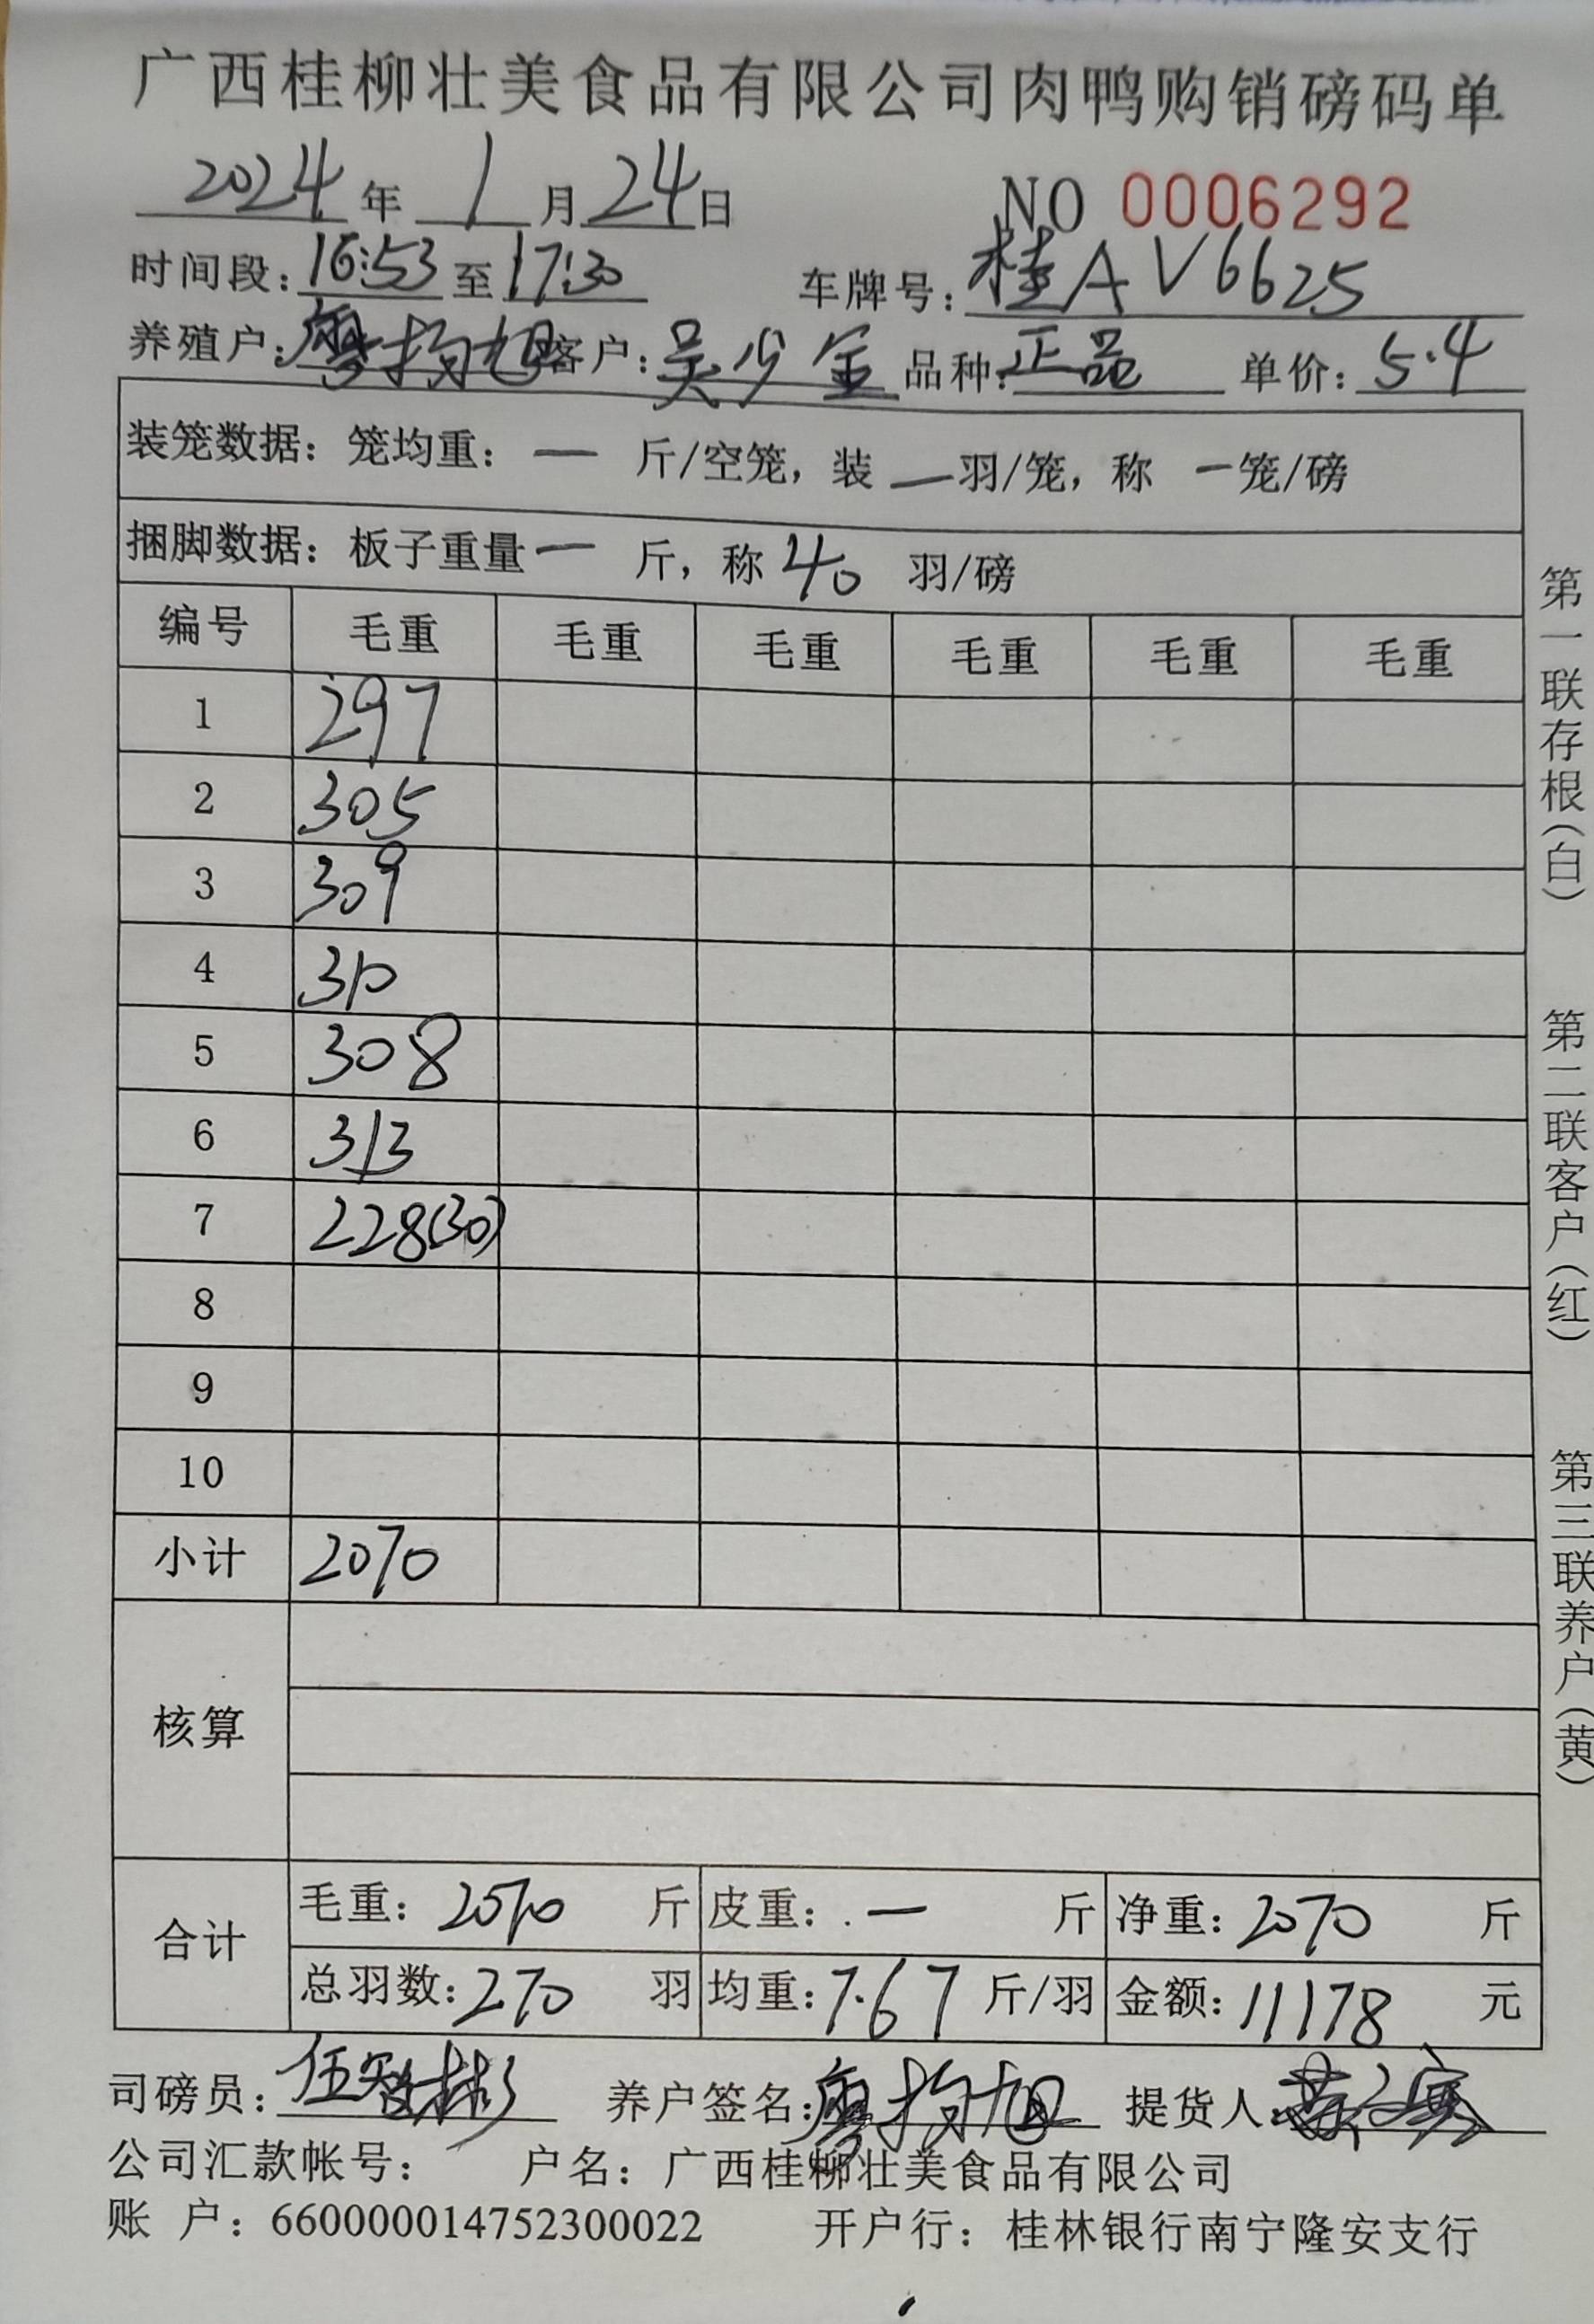 广西桂柳壮美食品有限公司肉鸭购销磅码单
2024年1月24日 NO 0006292
时间段：16:53至17:30 车牌号：桂AV6625
养殖户：廖均旭 客户：吴少金 品种：正品 单价：5.4
装笼数据：笼均重：一 斤/空笼，装一羽/笼，称 一笼/磅
捆脚数据：板子重量一 斤，称40 羽/磅
编号 毛重 毛重 毛重 毛重 毛重 毛重
1 297
2 305
3 309
4 310
5 308
6 313
7 228(30)
8
9
10
小计 2070
核算
合计 毛重：2070 斤 皮重：一 斤 净重：2070 斤
总羽数：270 羽 均重：7.67 斤/羽 金额：11178 元
司磅员：伍智彬 养户签名：廖均旭 提货人：
公司汇款帐号： 户名：广西桂柳壮美食品有限公司
账 户：660000014752300022 开户行：桂林银行南宁隆安支行
第一联存根（白） 第二联客户（红） 第三联养户（黄）